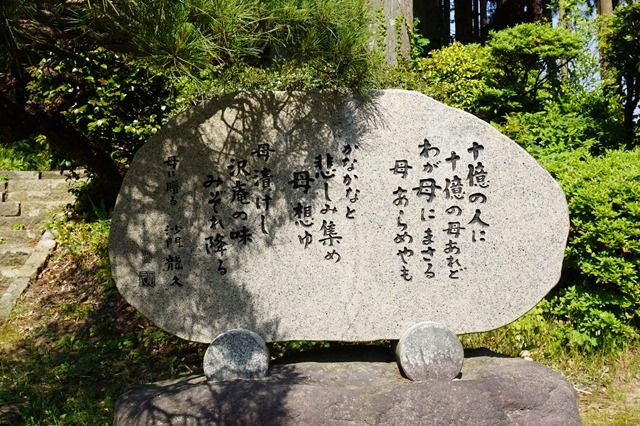 十億の人に
十億の母あれど
わが母にまさる
母あらめやも
かなかなと
悲しみ集め
母想ゆ
母漬けし
沢庵の味
みぞれ降る
母に贈る 沙門 龍久